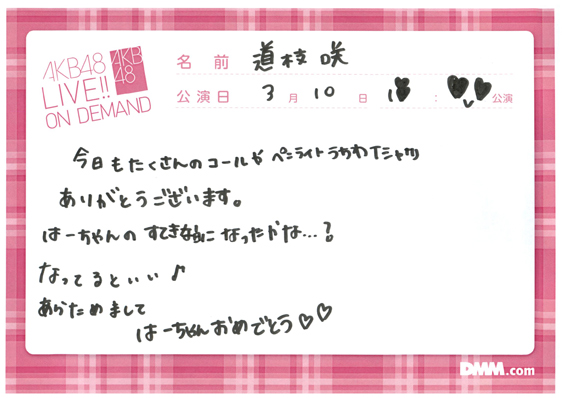 AKB48
LIVE!!
ON DEMAND
AKB
48
名前 道枝咲
公演日 3月10日 18: 公演
今日もたくさんのコールや ペンライトうちわTシャツ
ありがとうございます。
はーちゃんの すてきな になったかな…?
なってるといい♪
あらためまして
はーちゃんおめでとう♡♡
DMM.com